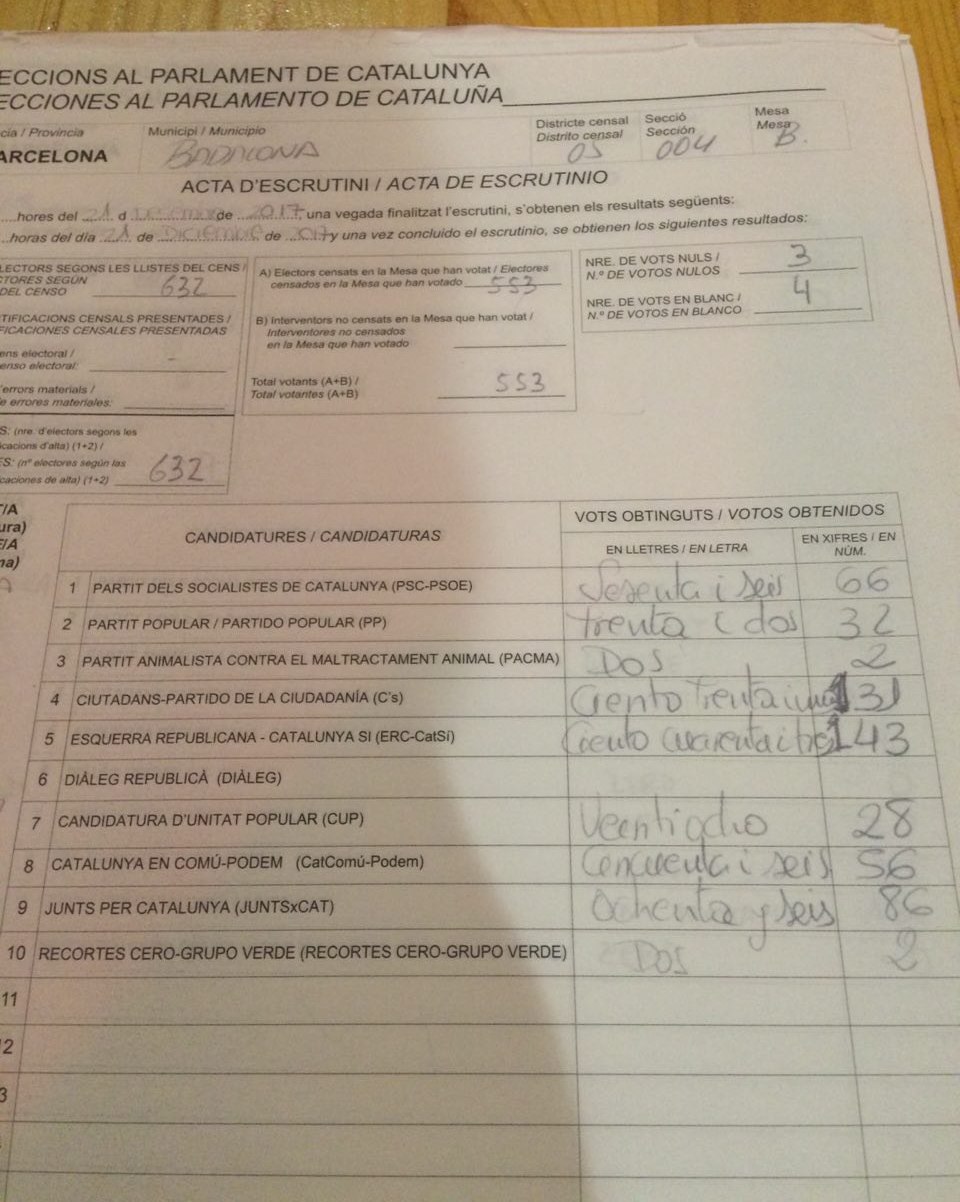 ECCIONS AL PARLAMENT DE CATALUNYA
ECCIONES AL PARLAMENTO DE CATALUÑA
cia / Provincia Municipi / Municipio Districte censal Secció Mesa
Distrito censal Sección Mesa
ARCELONA BADALONA 05 004 B.
ACTA D'ESCRUTINI / ACTA DE ESCRUTINIO
hores del 21 d de 2017 una vegada finalitzat l'escrutini, s'obtenen els resultats següents:
horas del día 21 de Diciembre de 2017 y una vez concluido el escrutinio, se obtienen los siguientes resultados:
LECTORS SEGONS LES LLISTES DEL CENS /
CTORES SEGÚN
DEL CENSO 632
TIFICACIONS CENSALS PRESENTADES /
FICACIONES CENSALES PRESENTADAS
ens electoral /
enso electoral: -
'errors materials /
e errores materiales:
S: (nre. d'electors segons les
icacions d'alta) (1+2) /
ES: (nº electores según las
caciones de alta) (1+2) 632
A) Electors censats en la Mesa que han votat / Electores
censados en la Mesa que han votado 553
B) Interventors no censats en la Mesa que han votat /
Interventores no censados
en la Mesa que han votado
Total votants (A+B) /
Total votantes (A+B) 553
NRE. DE VOTS NULS /
N.º DE VOTOS NULOS 3
NRE. DE VOTS EN BLANC /
N.º DE VOTOS EN BLANCO 4
T/A
ura)
E/A
ma)
CANDIDATURES / CANDIDATURAS VOTS OBTINGUTS / VOTOS OBTENIDOS
EN LLETRES / EN LETRA EN XIFRES / EN NÚM.
1 PARTIT DELS SOCIALISTES DE CATALUNYA (PSC-PSOE) Sesenta i seis 66
2 PARTIT POPULAR / PARTIDO POPULAR (PP) trenta i dos 32
3 PARTIT ANIMALISTA CONTRA EL MALTRACTAMENT ANIMAL (PACMA) DOS 2
4 CIUTADANS-PARTIDO DE LA CIUDADANÍA (C's) Ciento trenta i uno 131
5 ESQUERRA REPUBLICANA - CATALUNYA SI (ERC-CatSí) Ciento cuarenta i tres 143
6 DIÀLEG REPUBLICÀ (DIÀLEG)
7 CANDIDATURA D'UNITAT POPULAR (CUP) Veentiocho 28
8 CATALUNYA EN COMÚ-PODEM (CatComú-Podem) Cencuenta i seis 56
9 JUNTS PER CATALUNYA (JUNTSxCAT) Ochenta y seis 86
10 RECORTES CERO-GRUPO VERDE (RECORTES CERO-GRUPO VERDE) Dos 2
11
2
3